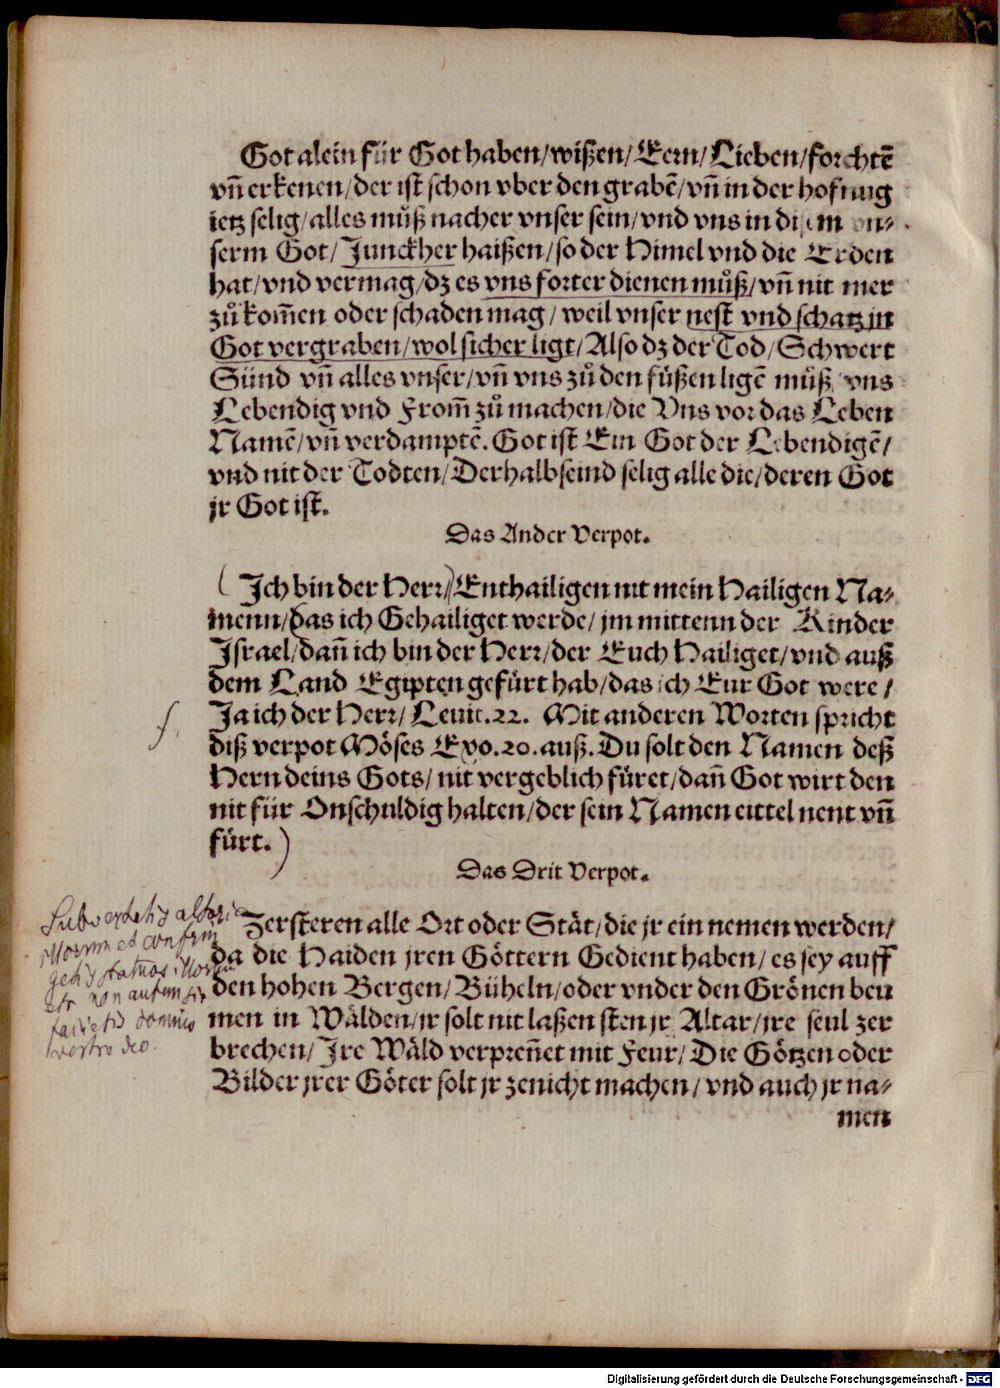 Got alein für Got haben/wißen/Eern/Lieben/forchtẽ
vñ erkenen/der ist schon vber den grabẽ/vñ in der hofnug
ietz selig/alles můß nacher vnser sein/vnd vns in disem vn-
serm Got/Junckher haißen/so der Himel vnd die Erden
hat/vnd vermag/dz es vns forter dienen můß/vñ nit mer
zů kom̃en oder schaden mag/weil vnser nest vnd schatz in
Got vergraben/wol sicher ligt/Also dz der Tod/Schwert
Sünd vñ alles vnser/vñ vns zů den füßen ligẽ můß/vns
Lebendig vnd From̃ zů machen/die Vns vor das Leben
Namẽ/vñ verdamptẽ. Got ist Ein Got der Lebendigẽ/
vnd nit der Todten/Derhalb seind selig alle die/deren Got
jr Got ist.
Das Ander Verpot.
(Ich bin der Herr/Enthailigen nit mein Hailigen Na-
menn/das ich Gehailiget werde/jm mittenn der Kinder
Israel/dañ ich bin der Herr/der Euch Hailiget/vnd auß
dem Land Egipten gefürt hab/das ich Eur Got were/
Ja ich der Herr/Leuit.22. Mit anderen Worten spricht
diß verpot Möses Exo.20.auß. Du solt den Namen deß
Hern deins Gots/nit vergeblich füret/dañ Got wirt den
nit für Onschuldig halten/der sein Namen eittel nent vñ
fürt.)
Das Drit Verpot.
Zersteren alle Ort oder Stät/die jr ein nemen werden/
da die Haiden jren Göttern Gedient haben/es sey auff
den hohen Bergen/Büheln/oder vnder den Grönen beu
men in Wälden/jr solt nit laßen sten jr Altar/jre seul zer
brechen/Ire Wäld verpreñet mit Feur/Die Götzen oder
Bilder jrer Göter solt jr zenicht machen/vnd auch jr na-
men
Subvertetis altaria
illorum et confrin
getis statuas illoru
etc non autem sic
facietis domino
vestro deo.
Digitalisierung gefördert durch die Deutsche Forschungsgemeinschaft - DFG